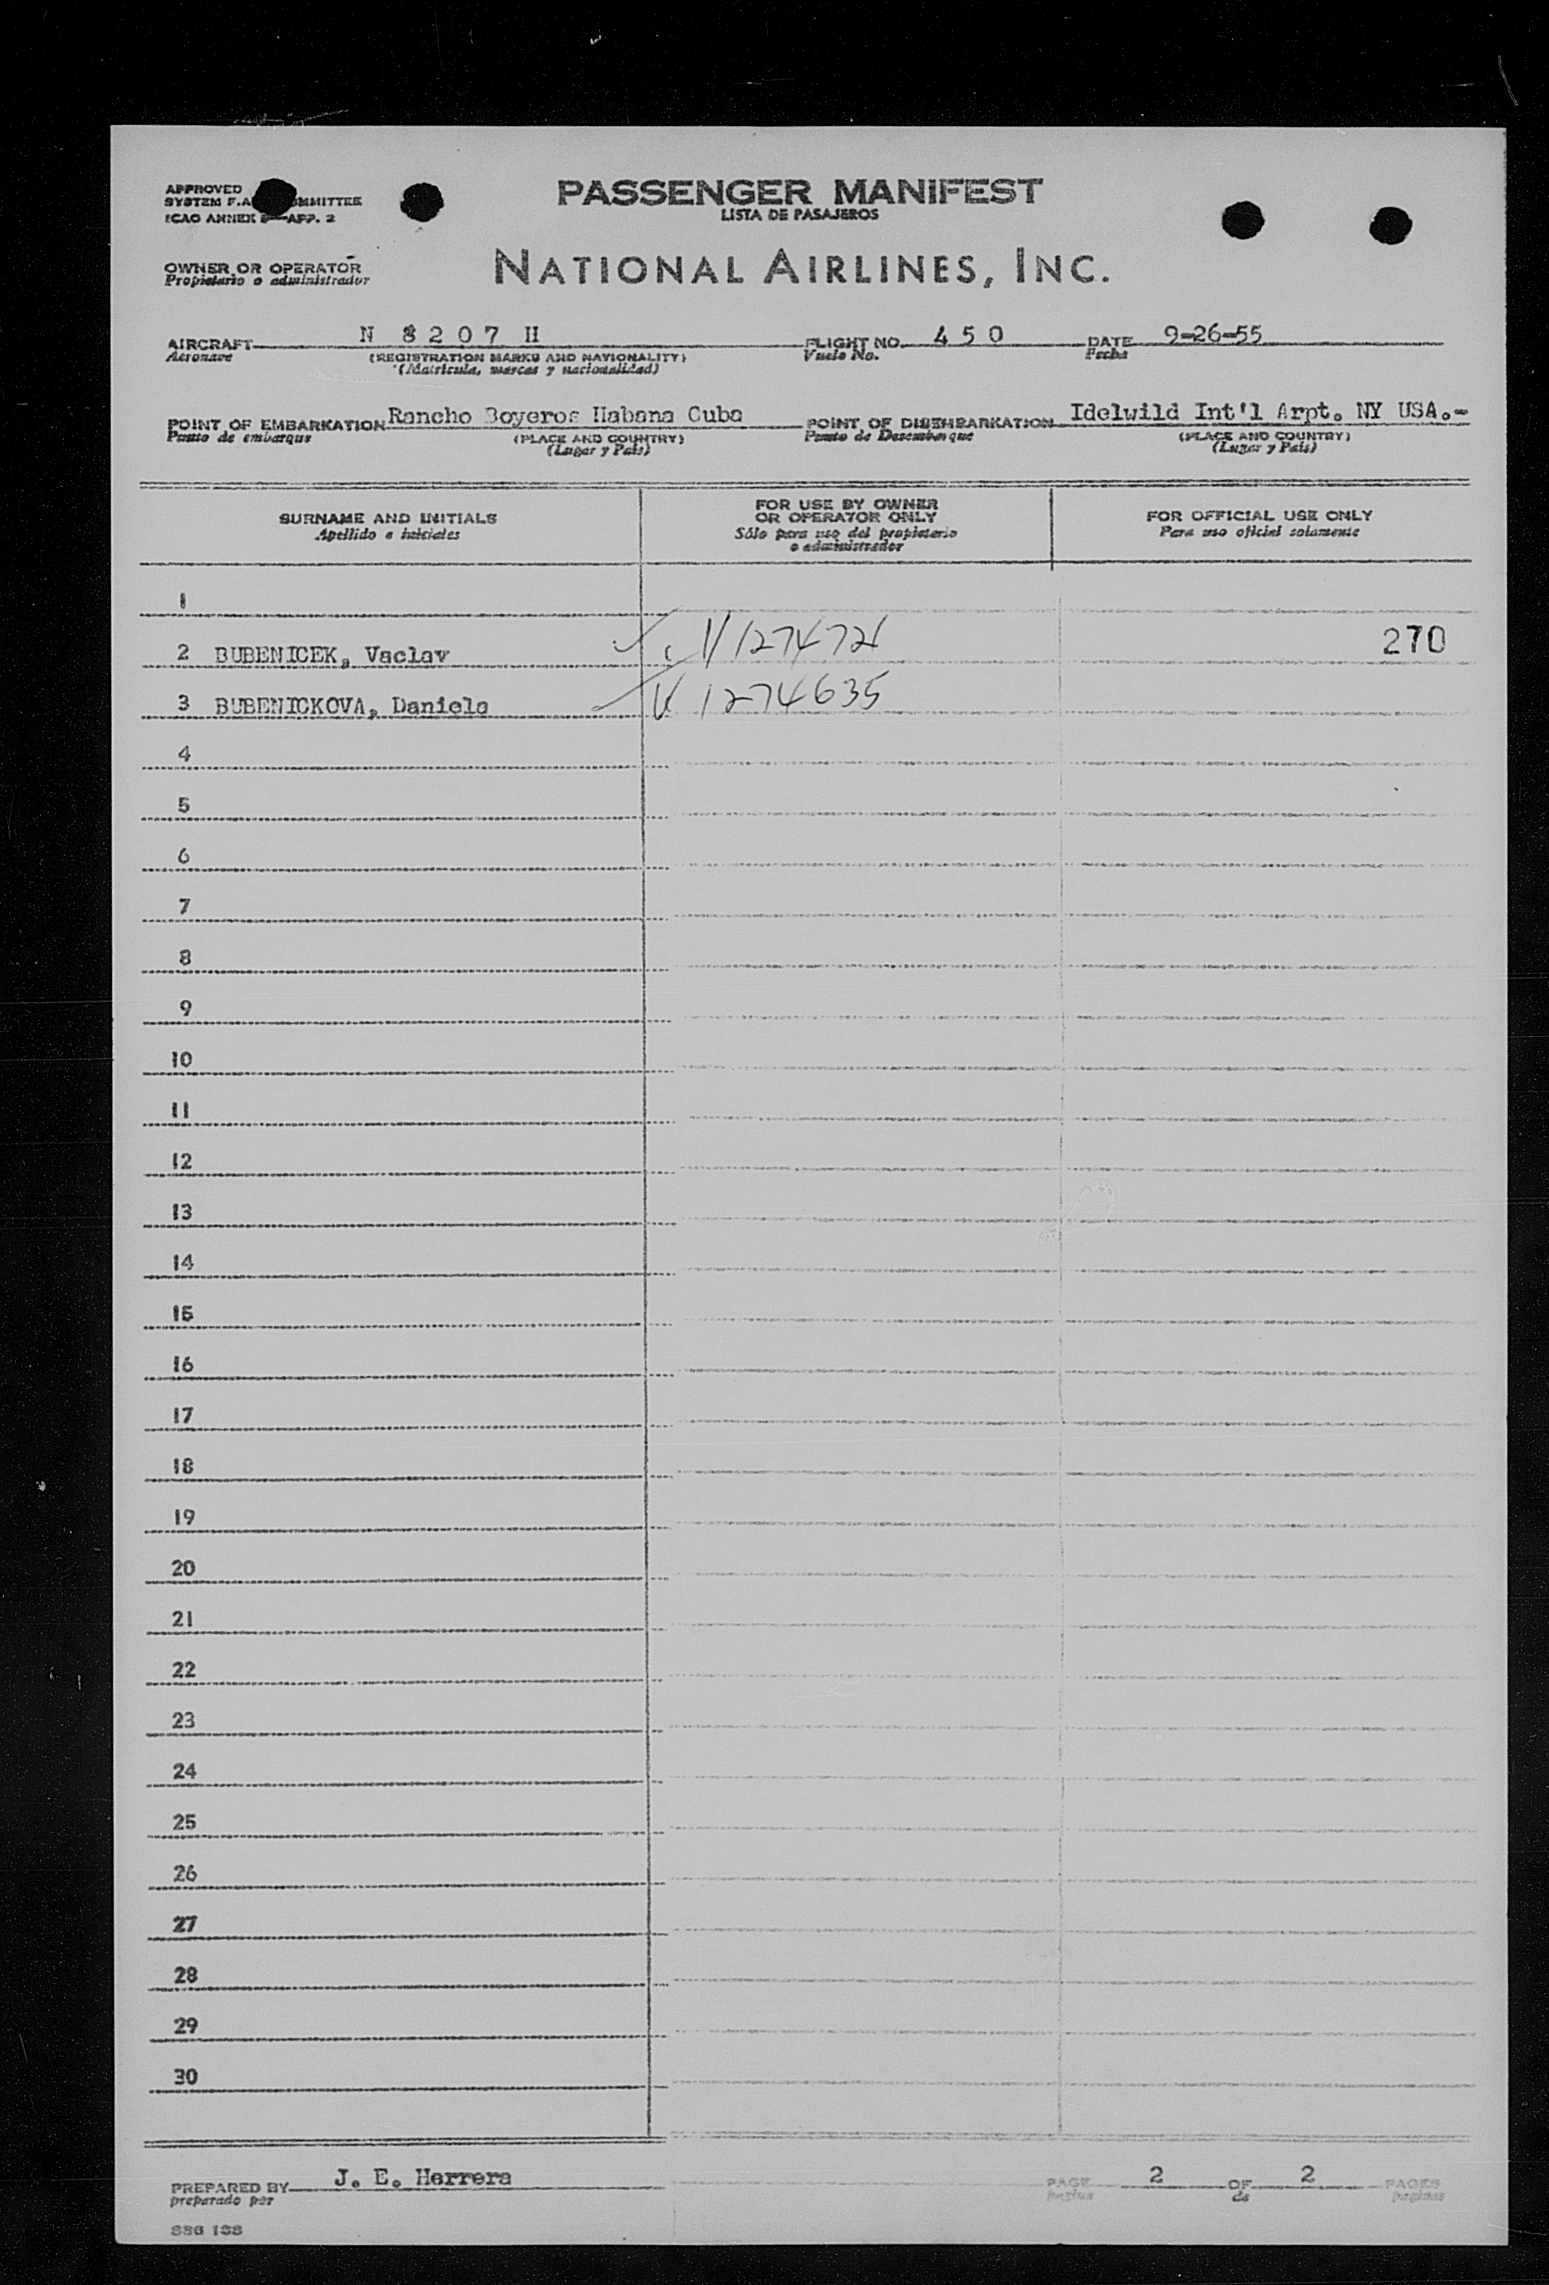 APPROVED
SYSTEM F.A. COMMITTEE
ICAO ANNEX 9—APP. 2
PASSENGER MANIFEST
LISTA DE PASAJEROS
OWNER OR OPERATOR
Propietario o administrador
NATIONAL AIRLINES, INC.
AIRCRAFT N 8 2 0 7 H FLIGHT NO. 4 5 0 DATE 9-26-55
Aeronave (REGISTRATION MARKS AND NATIONALITY) Vuelo No. Fecha
(Matricula, marcas y nacionalidad)
POINT OF EMBARKATION Rancho Boyeros Habana Cuba POINT OF DISEMBARKATION Idelwild Int'l Arpt. NY USA.-
Punto de embarque (PLACE AND COUNTRY) Punto de Desembarque (PLACE AND COUNTRY)
(Lugar y País) (Lugar y País)
SURNAME AND INITIALS FOR USE BY OWNER OR OPERATOR ONLY FOR OFFICIAL USE ONLY
Apellido e iniciales Sólo para uso del propietario o administrador Para uso oficial solamente
1
2 BUBENICEK, Vaclav V 1274721 270
3 BUBENICKOVA, Daniela V 1274635
4
5
6
7
8
9
10
11
12
13
14
15
16
17
18
19
20
21
22
23
24
25
26
27
28
29
30
PREPARED BY J. E. Herrera PAGE 2 OF 2 PAGES
preparado por pagina de paginas